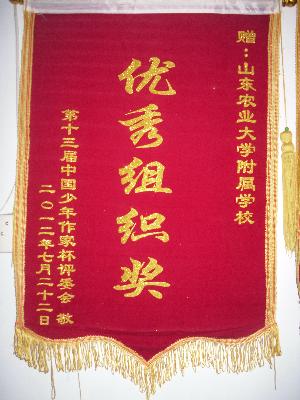 赠：山东农业大学附属学校
优秀组织奖
第十三届中国少年作家杯评委会 敬
二〇一二年七月二十二日